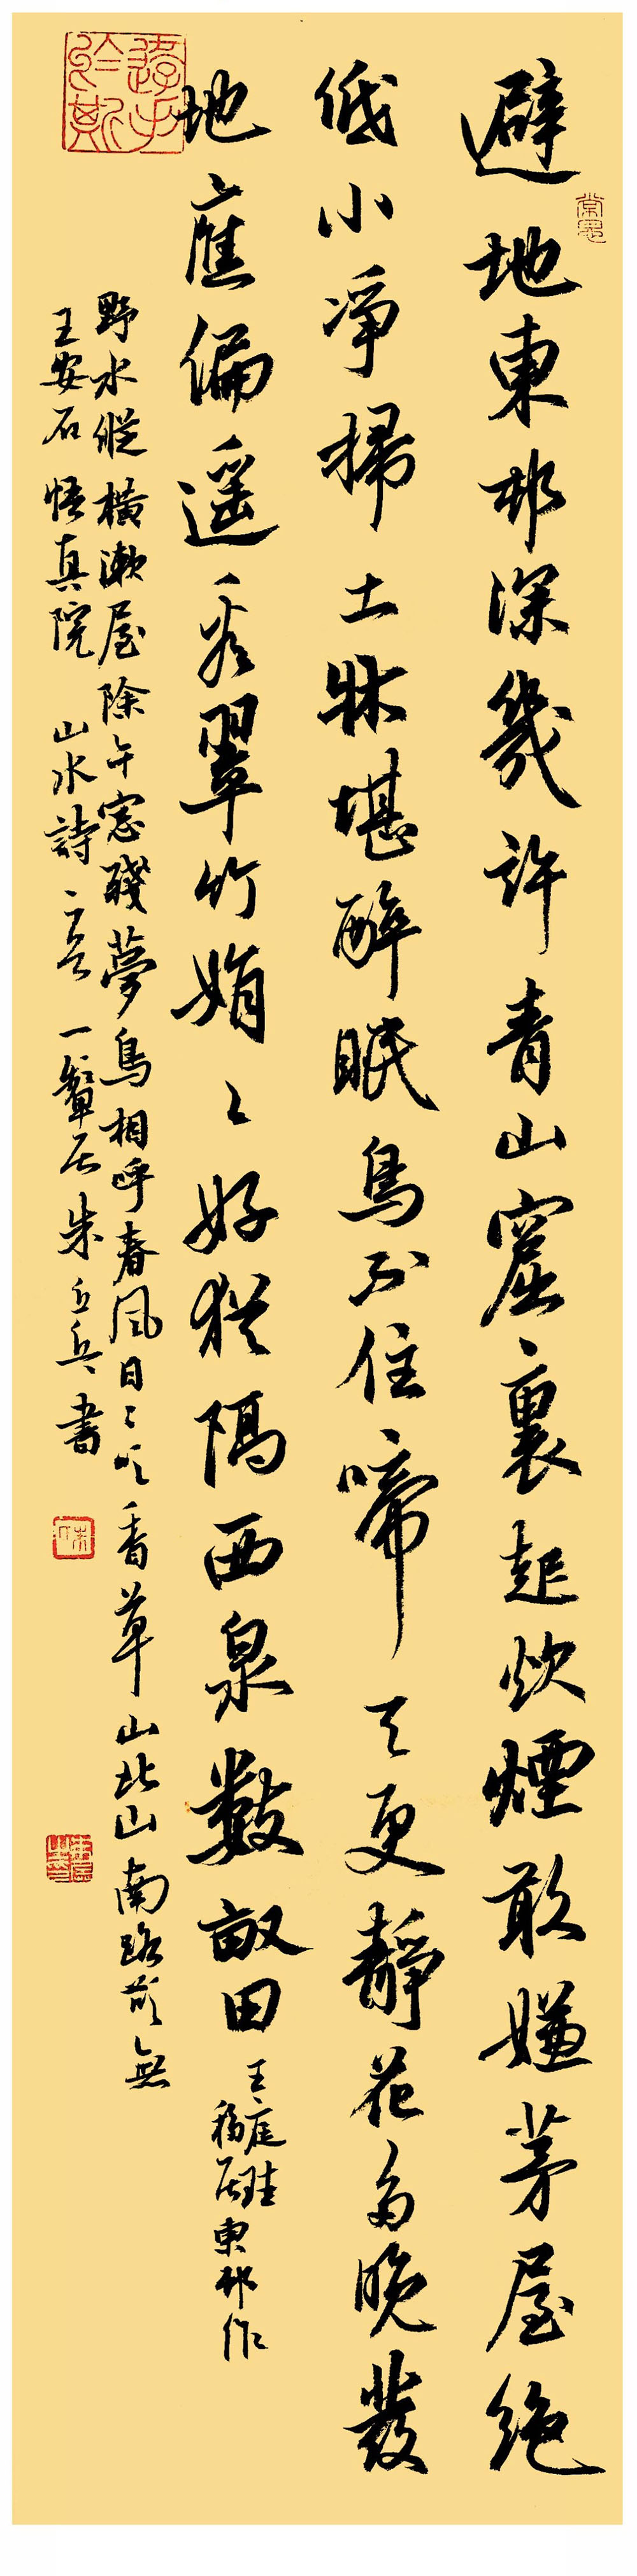 避地東邨深幾許青山窟裏起炊煙敢嫌茅屋絶
低小淨掃土牀堪醉眠鳥不住啼天更靜花多晚發
地應偏遥看翠竹娟〻好猶隔西泉數畝田
王庭珪
移居東邨作
野水縱橫漱屋除午窓殘夢鳥相呼春風日〻吹香草山北山南路欲無
王安石 悟真院 山水詩二首 一 居朱 兵書